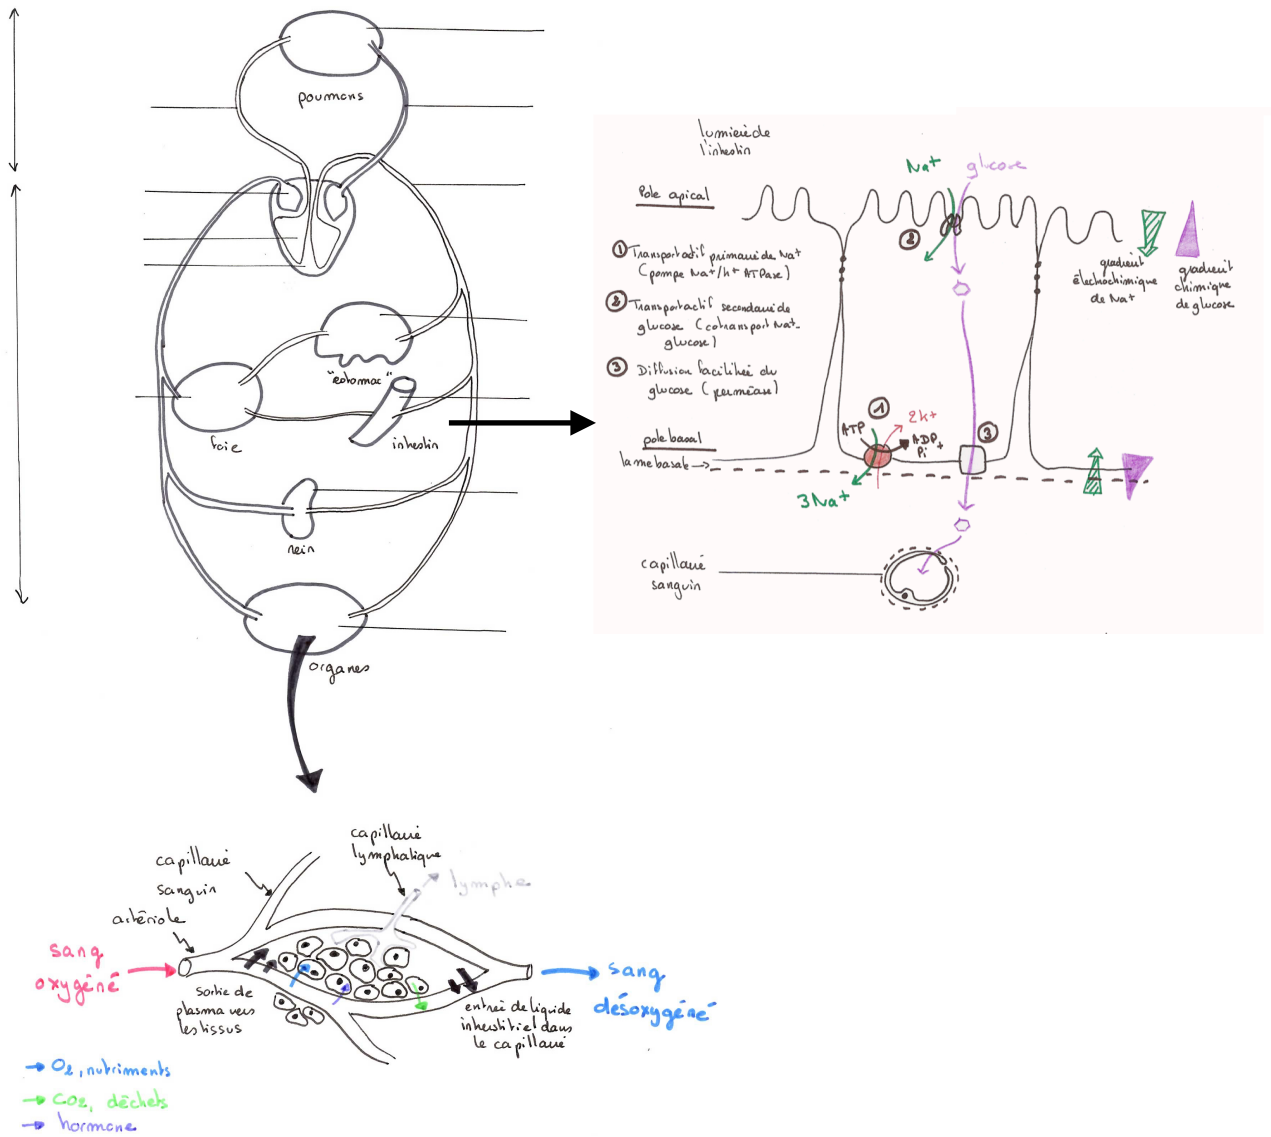 poumons
"estomac"
foie
intestin
rein
organes
lumière de
l'intestin
Na+
glucose
Pole apical
① Transport actif primaire de Na+
(pompe Na+/k+ ATPase)
② Transport actif secondaire de
glucose (cotransport Na+-
glucose)
③ Diffusion facilitée du
glucose (perméase)
②
gradient
électrochimique
de Na+
gradient
chimique
de glucose
①
2k+
ATP
ADP
+
Pi
③
pole basal
lame basale
3Na+
capillaire
sanguin
capillaire
lymphatique
lymphe
capillaire
sanguin
artériole
sang
oxygéné
sortie de
plasma vers
les tissus
entrée de liquide
interstitiel dans
le capillaire
sang
désoxygéné
O2, nutriments
CO2, déchets
hormone